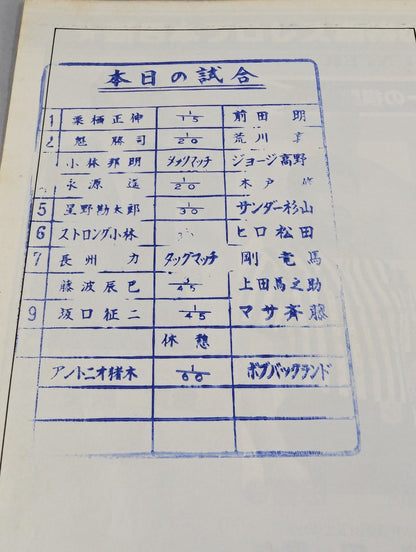 本日の試合
1 栗栖正伸 1/15 前田 明
2 魁 勝司 1/20 荒川
小林邦明 シングルマッチ ジョージ高野
永源 遙 1/20 木戸 修
5 星野勘太郎 1/30 サンダー杉山
6 ストロング小林 ヒロ松田
7 長州 力 タッグマッチ 剛 竜馬
藤波辰巳 3/45 上田馬之助
9 坂口征二 1/45 マサ斉藤
休憩
アントニオ猪木 1/60 ボブバックランド